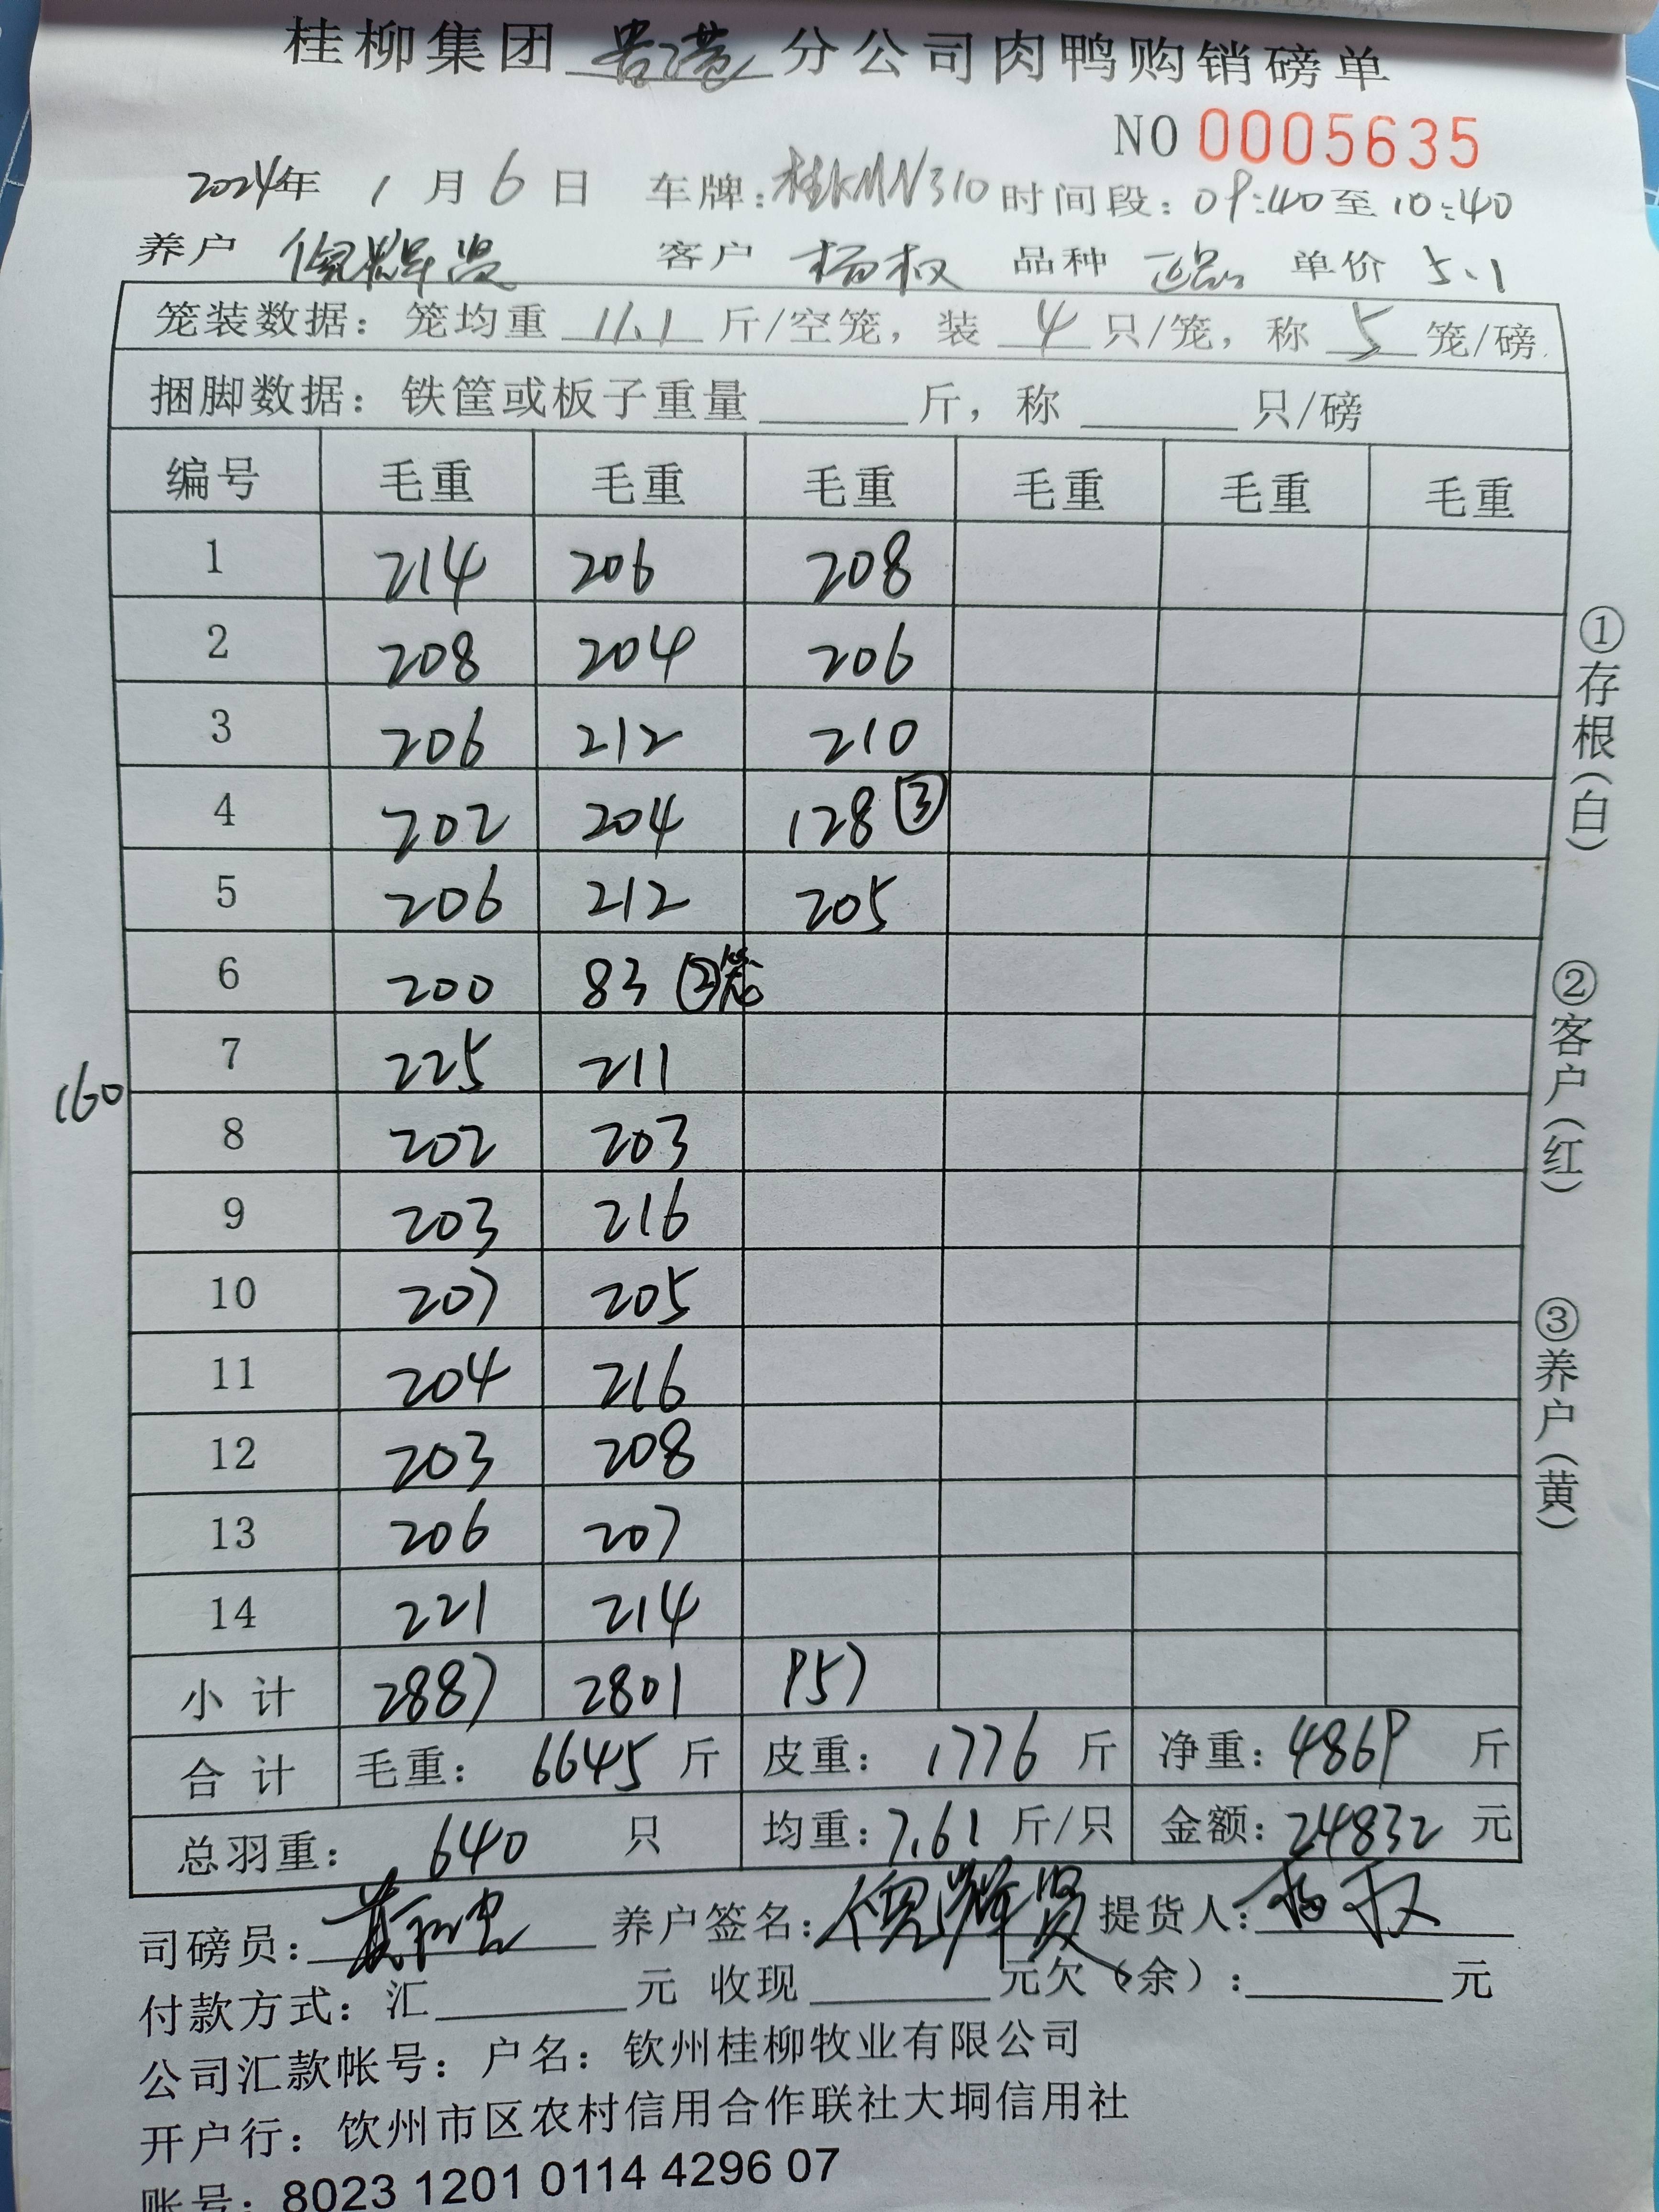 桂柳集团 贵港 分公司肉鸭购销磅单
NO 0005635
2024年 1 月 6 日 车牌:桂KMN310 时间段: 09:40至10:40
养户 倪辉贤 客户 杨权 品种 正品 单价 5.1
笼装数据: 笼均重 11.1 斤/空笼, 装 4 只/笼, 称 5 笼/磅
捆脚数据: 铁筐或板子重量 斤, 称 只/磅
编号 毛重 毛重 毛重 毛重 毛重 毛重
1 214 206 208
2 208 204 206
3 206 212 210
4 202 204 128 ③
5 206 212 205
6 200 83 ②笼
7 225 211
160
8 202 203
9 203 216
10 207 205
11 204 216
12 203 208
13 206 207
14 221 214
小计 2887 2801 957
合计 毛重: 6645 斤 皮重: 1776 斤 净重: 4869 斤
总羽重: 640 只 均重: 7.61 斤/只 金额: 24832 元
司磅员: 养户签名: 倪辉贤 提货人: 杨权
付款方式: 汇 元 收现 元欠(余): 元
公司汇款帐号: 户名: 钦州桂柳牧业有限公司
开户行: 钦州市区农村信用合作联社大垌信用社
账号: 8023 1201 0114 4296 07
①存根(白)
②客户(红)
③养户(黄)